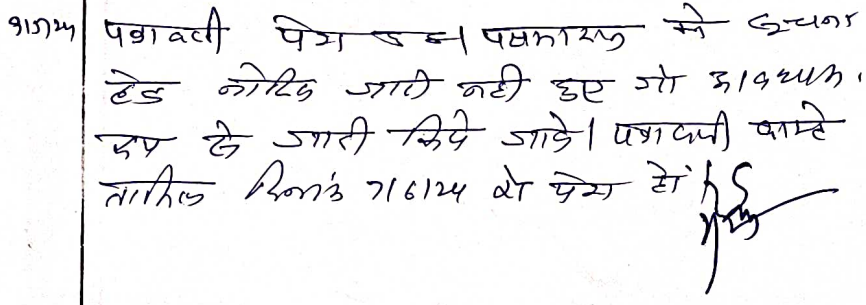 9/5/24 पत्रावली पेश हुई। पक्षकारान को सूचनार्थ
हेतु नोटिस जारी नही हुए जो आवश्यक
रूप से जारी किये जावे। पत्रावली वास्ते
तामिल दिनांक 7/6/24 को पेश हो।